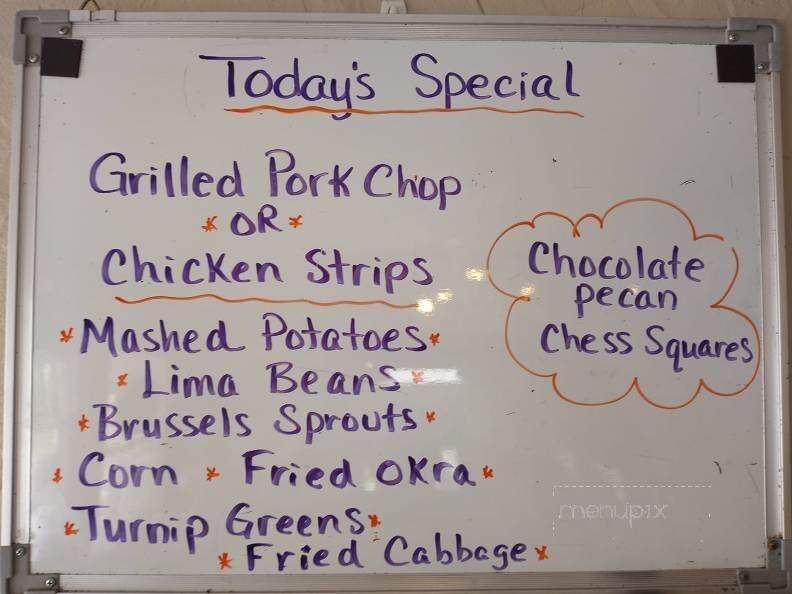 Today's Special
Grilled Pork Chop
* OR *
Chicken Strips
* Mashed Potatoes *
* Lima Beans *
* Brussels Sprouts *
* Corn * Fried Okra *
* Turnip Greens *
* Fried Cabbage *
Chocolate
pecan
Chess Squares
menupix